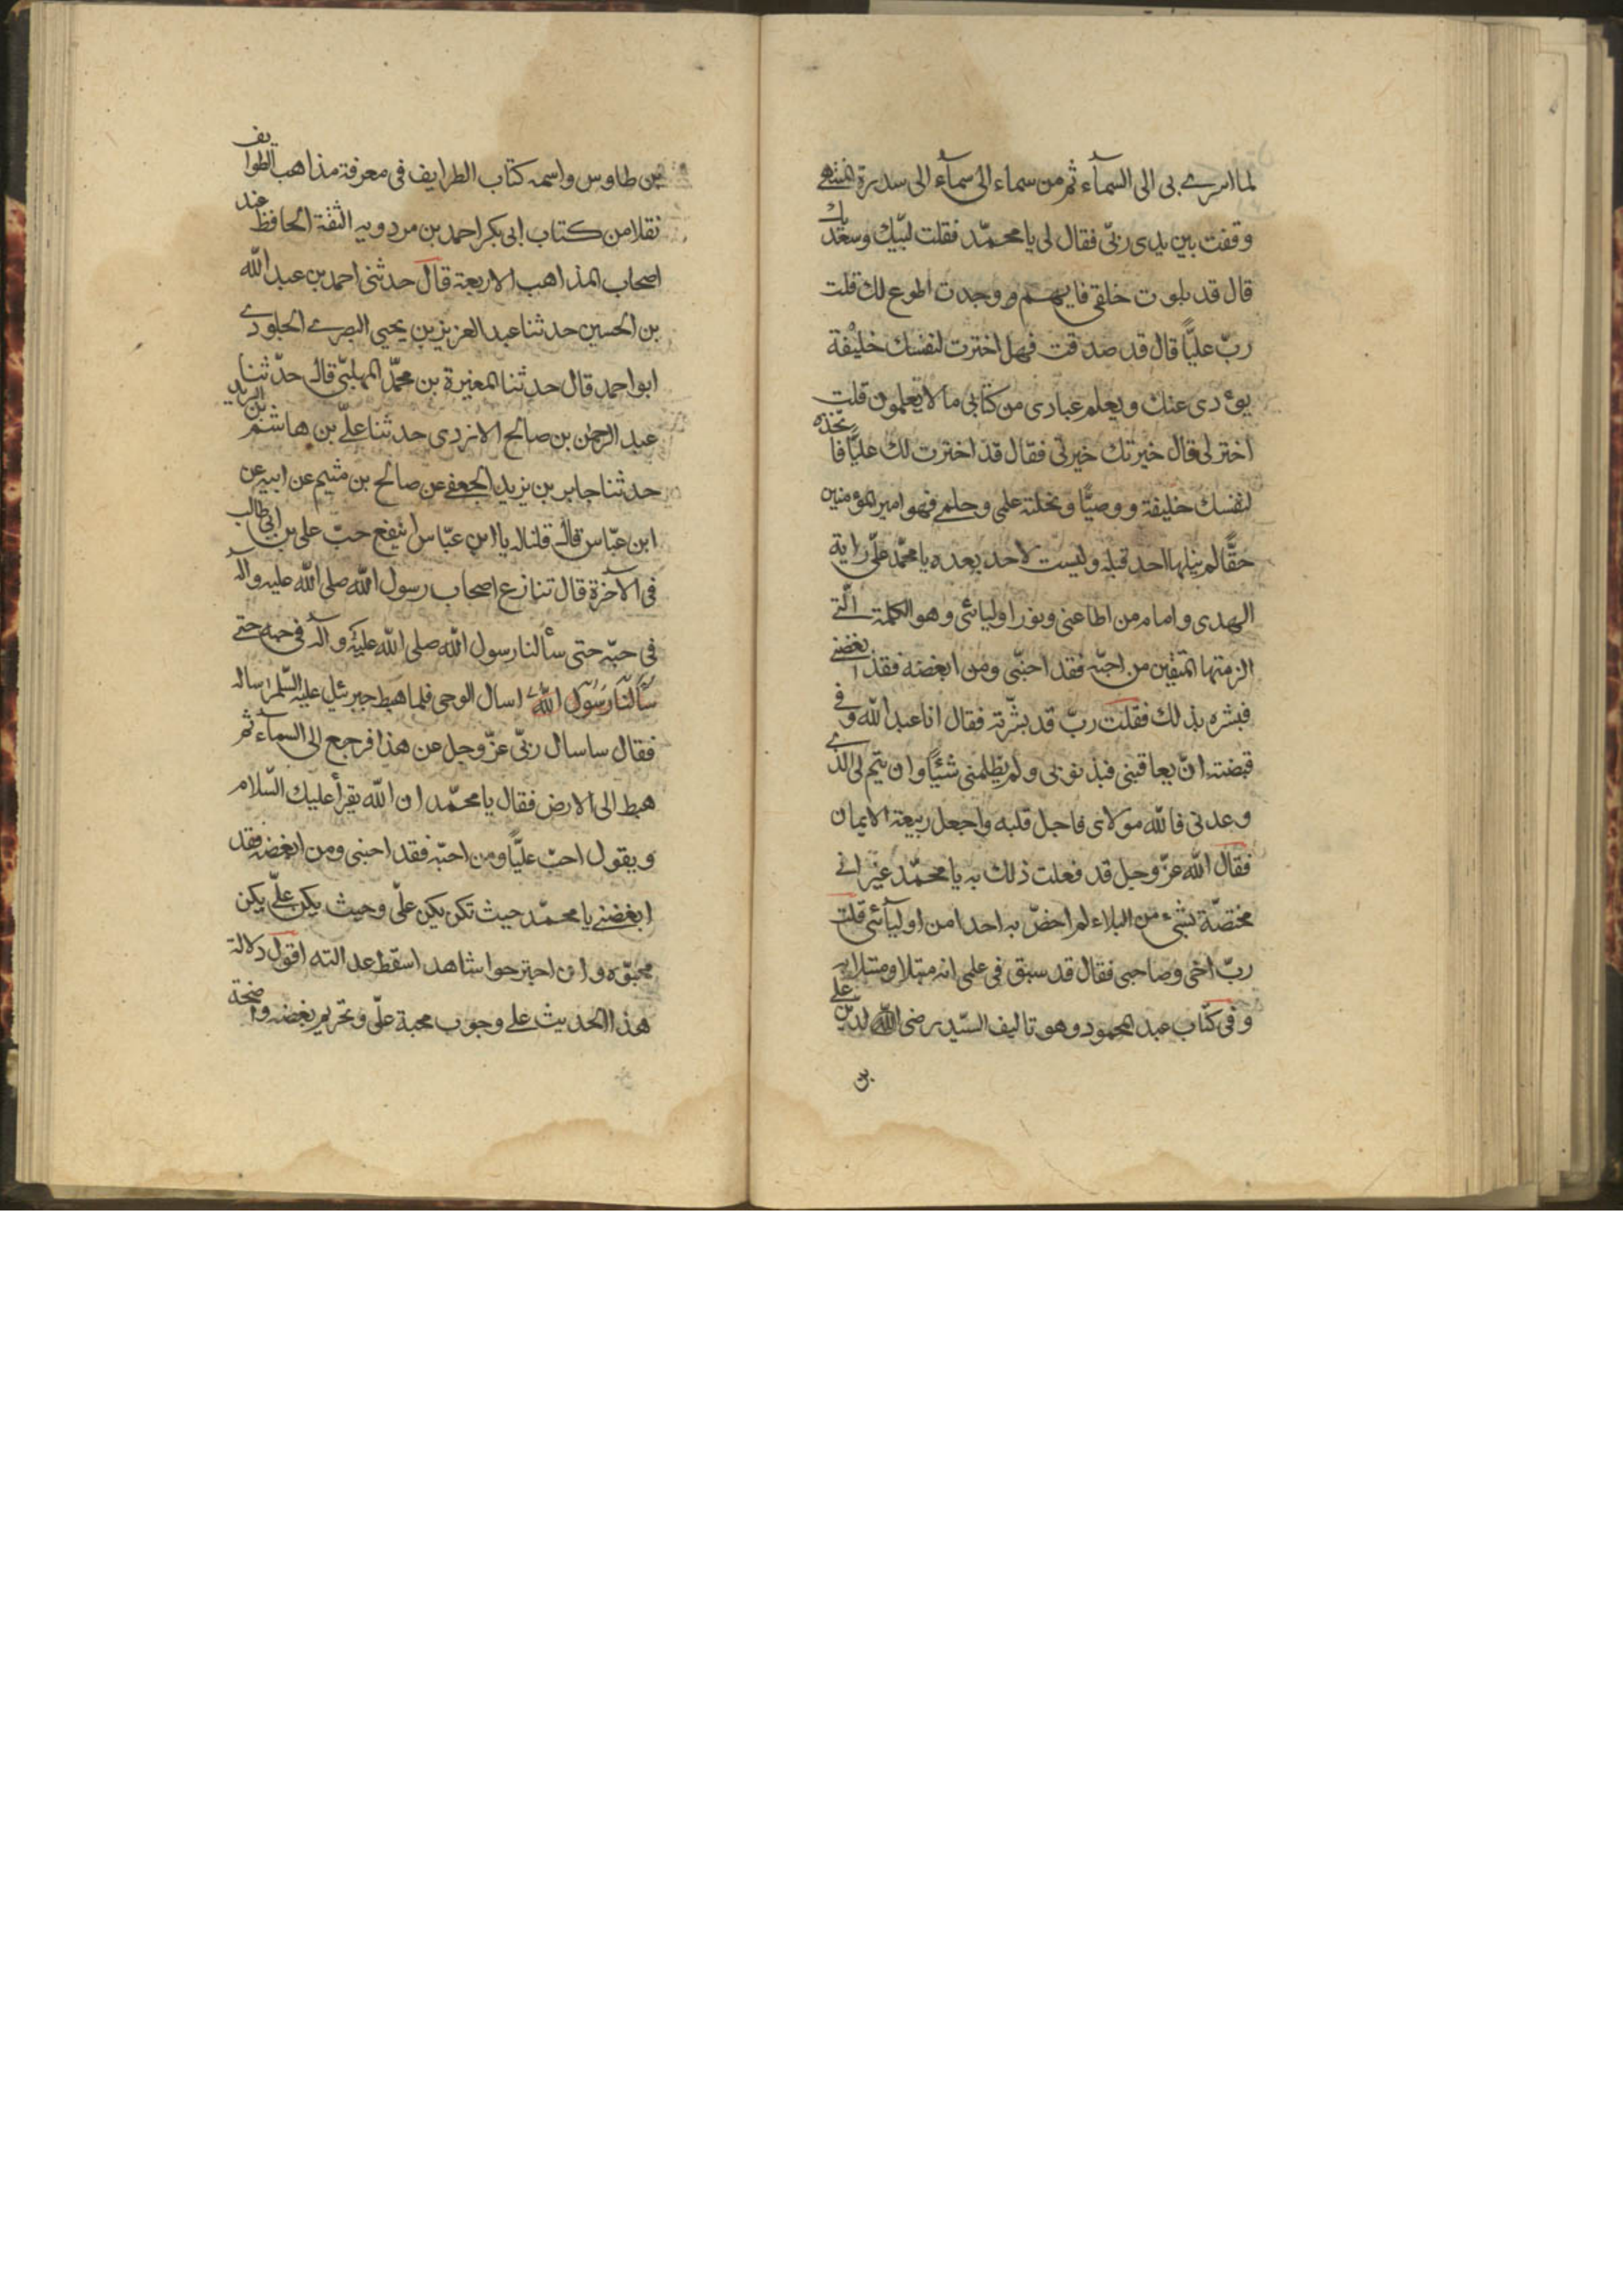 لما اسرى بى الى السمآء ثم من سماء الى سمآء الى سدرة المنتهى
وقفت بين يدى ربّى فقال لى يا محمّد فقلت لبّيك وسعديك
قال قد بلوت خلقى فايهم وجدت اطوع لك قلت
ربّ عليّاً قال قد صدقت فهل اخترت لنفسك خليفة
يؤدى عنك ويعلم عبادى من كتابى ما لا يعلمون قلت
اختر لى قال خيرتك خيرتى فقال قد اخترت لك عليّاً فاتخذه
لنفسك خليفة ووصيّاً ونحلته علمى وحلمى فهو امير المؤمنين
حقّاً لم ينلها احد قبله وليست لاحد بعده يا محمّد علىّ راية
الهدى وامام من اطاعنى ونور اوليائى وهو الكلمة الّتى
الزمتها المتقين من احبّه فقد احبّنى ومن ابغضه فقد ابغضنى
فبشره بذلك فقلت ربّ قد بشّرته فقال انا عبد الله وفى
قبضته ان يعاقبنى فبذنوبى ولم يظلمنى شيئاً وان يتم لى الذى
وعدنى فالله مولاى فاجل قلبه واجعل ربيعة الايمان
فقال الله عزّ وجل قد فعلت ذلك به يا محمّد غير انى
مختصّة بشىء من البلاء لم اخصّ به احدا من اوليآئى قلت
ربّ اخى وصاحبى فقال قد سبق فى علمى انه مبتلا ومبتلا به
وفى كتاب عبد المحمود وهو تاليف السيّد رضى الله لدين على
بن
بن طاوس واسمه كتاب الطرايف فى معرفة مذاهب الطوايف
نقلا من كتاب ابى بكر احمد بن مردويه الثقة الحافظ عند
اصحاب المذاهب الاربعة قال حدثنى احمد بن عبد الله
بن الحسين حدثنا عبد العزيز بن يحيى البصرى الجلودى
ابو احمد قال حدثنا المغيرة بن محمّد المهلبىّ قال حدّثنا
عبد الرحمن بن صالح الازدى حدثنا علىّ بن هاشم بن البريد
حدثنا جابر بن يزيد الجعفى عن صالح بن ميثم عن ابيه عن
ابن عبّاس قال قلنا له يا ابن عبّاس اينفع حبّ على بن ابى طالب
فى الآخرة قال تنازع اصحاب رسول الله صلى الله عليه وآله
فى حبّه حتى سألنا رسول الله صلى الله عليه وآله فى حبه حتى
سألنا رسول الله اسال الوحى فلما هبط جبرئيل عليه السّلم ساله
فقال ساسال ربّى عزّ وجل عن هذا فرجع الى السمآء ثم
هبط الى الارض فقال يا محمّد ان الله يقرأ عليك السّلام
ويقول احبّ عليّاً ومن احبّه فقد احبنى ومن ابغضه فقد
ابغضنى يا محمّد حيث تكن يكن علىّ وحيث يكن علىّ يكن
محبّوه وان اجترحوا شاهد اسقط عدالته اقول دلالة
هذا الحديث على وجوب محبة علىّ وتحريم بغضه واضحة